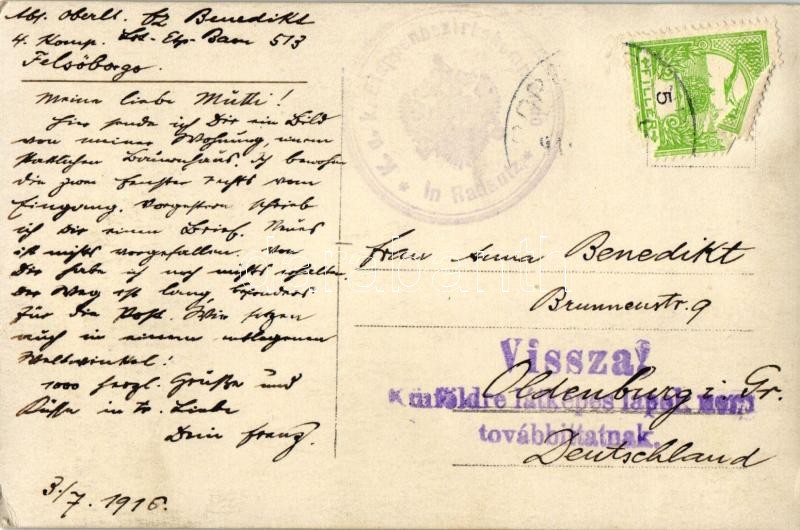 Abs. Oberlt. Benedikt
4. Komp. 513
Felsöborgo.
Meine liebe Mutti!
Hier sende ich Dir ein Bild
von meiner Wohnung, einem
stattlichen Bauernhaus. Ich bewohne
die zwei Fenster rechts vom
Eingang. Vorgestern schrieb
ich Dir einen Brief. Neues
ist nichts vorgefallen. Von
Dir habe ich noch nichts erhalten.
Der Weg ist lang, besonders
für die Post. Wir sitzen
auch in einem entlegenen
Weltwinkel!
1000 herzl. Grüße und
Küsse in tr. Liebe
Dein Franz.
3./7. 1916.
K. u. k.
in Radautz
FILLÉR
5
Frau Anna Benedikt
Brunnenstr. 9
Vissza!
Oldenburg i. Gr.
Külföldre látképes lapok nem
továbbíttatnak.
Deutschland